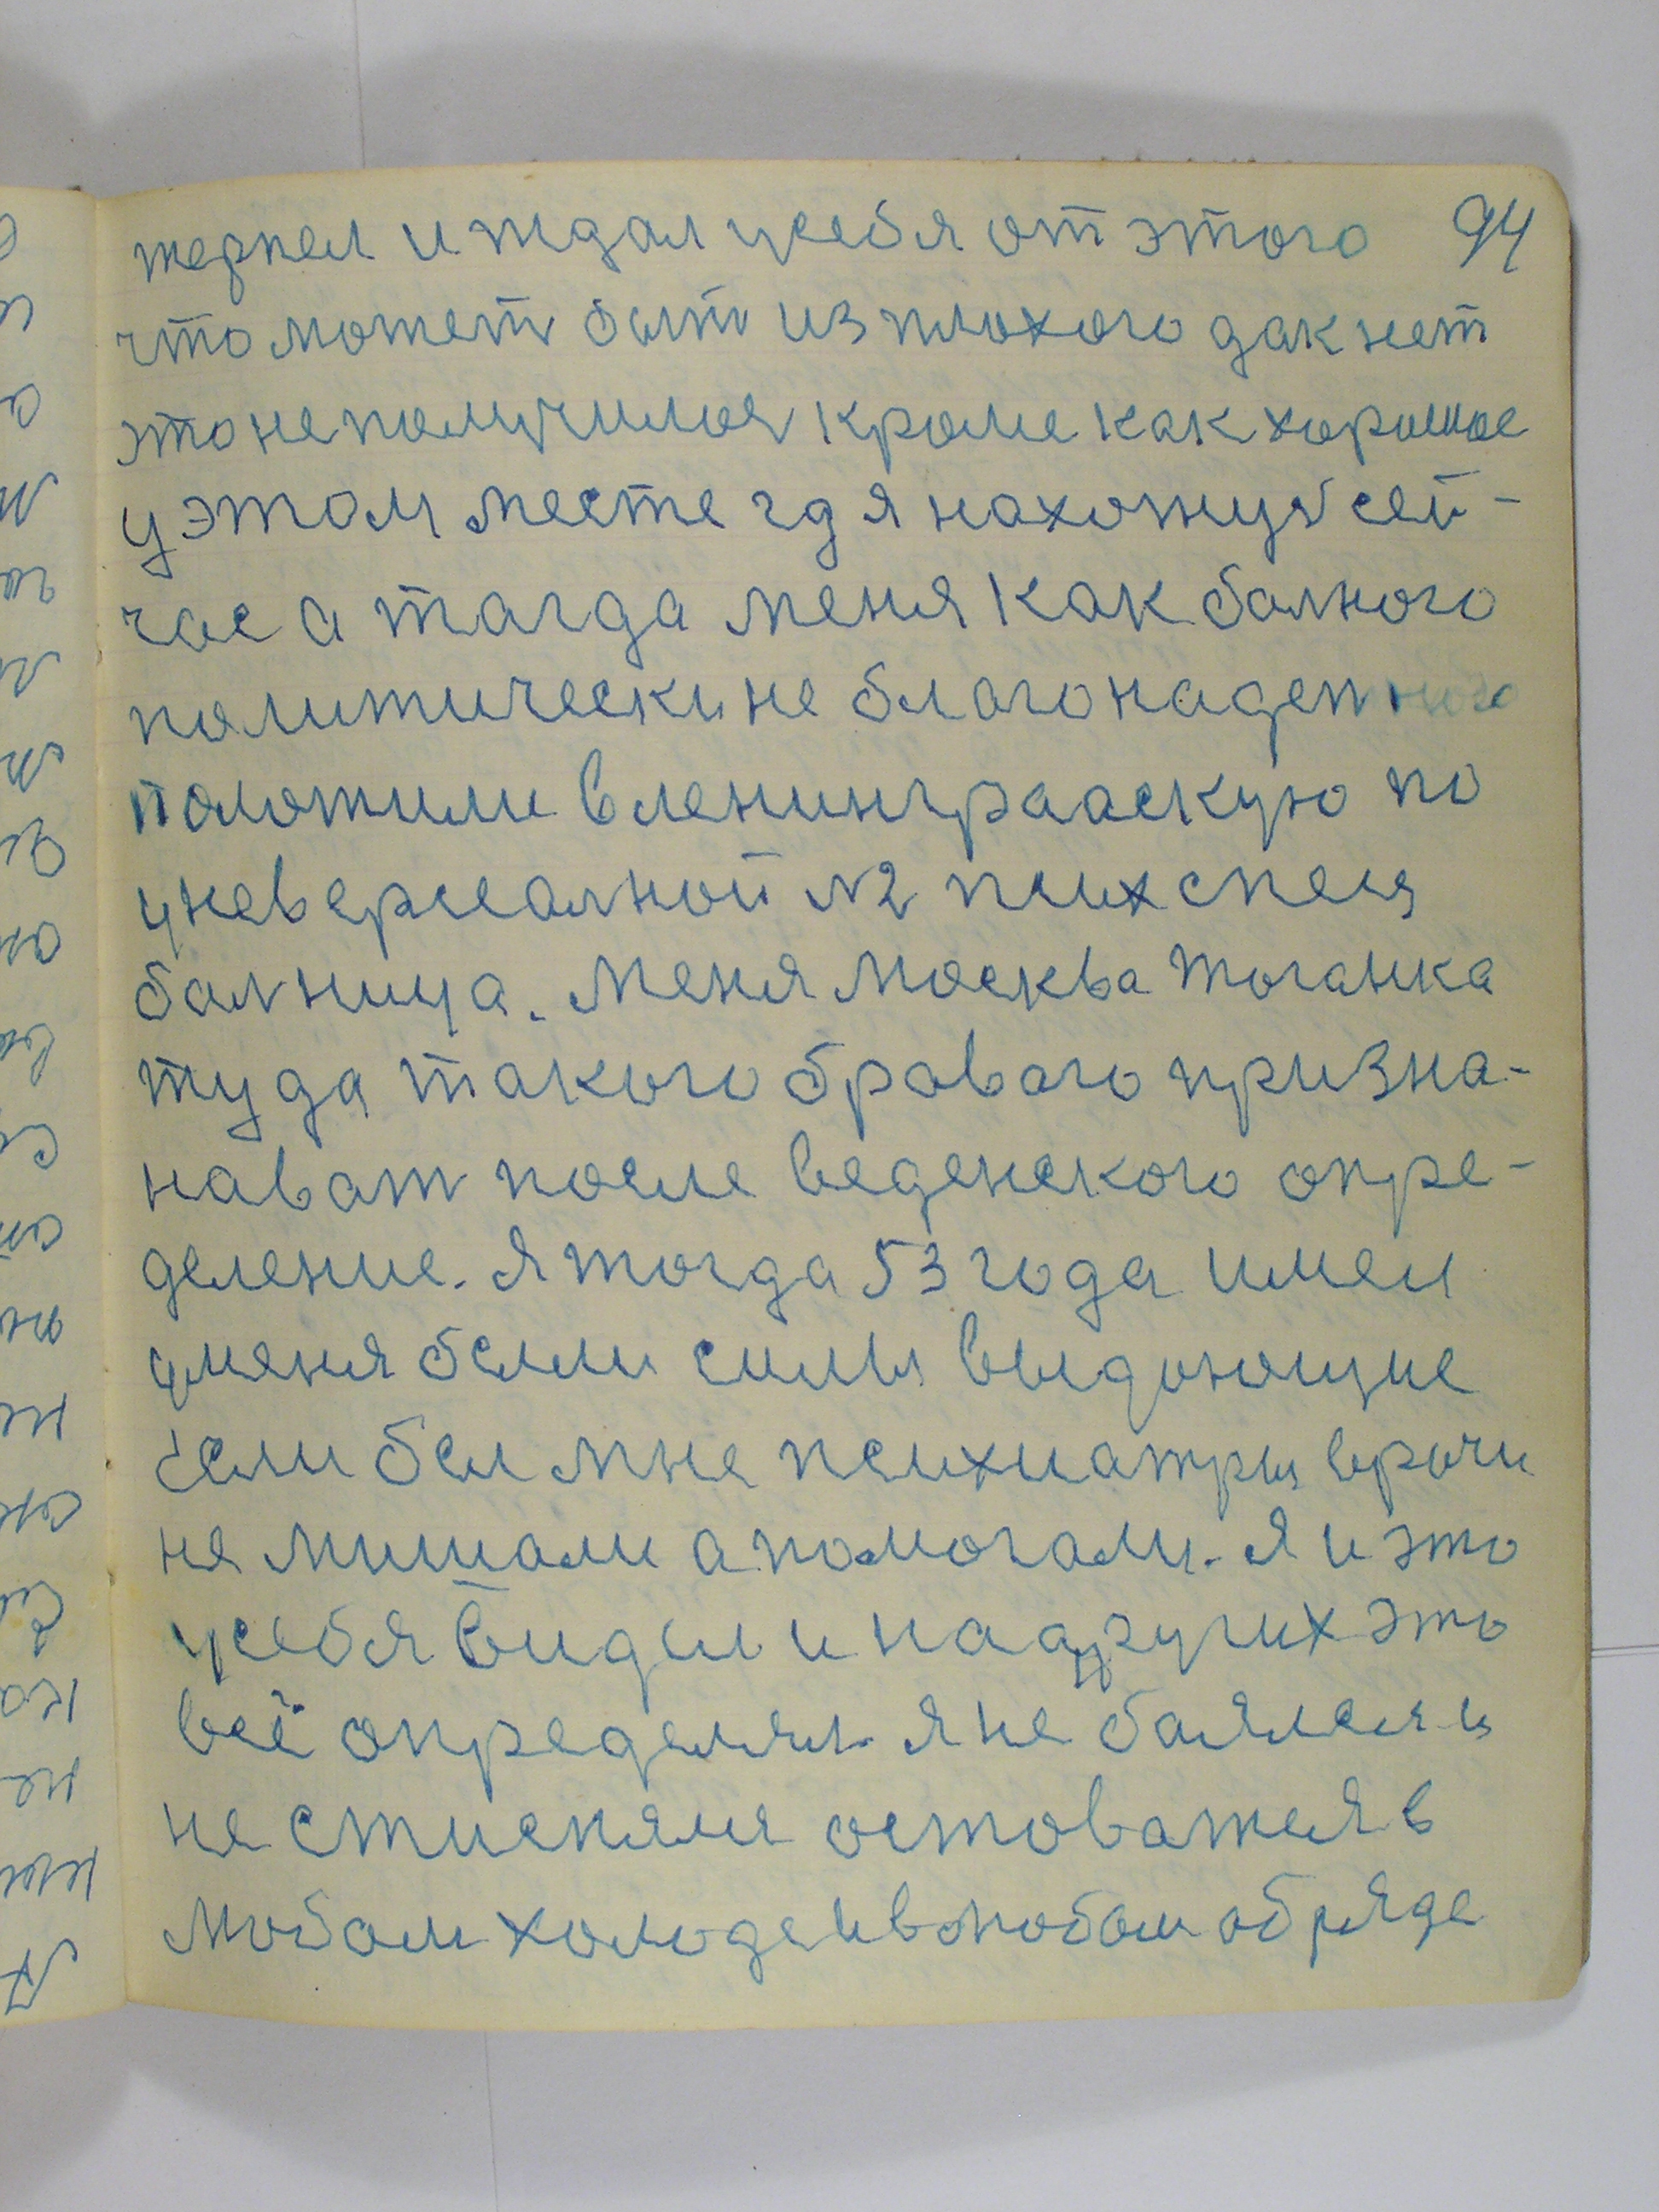 94
терпел и ждал усебя от этого
что может быть из плохого дак нет
это не получилось кроме как хорошое
у этом месте гд я нахожусь сей-
час а тагда меня как болного
политически не благонадеж ного
положили в ленинградскую по
уневерсеалной №2 псих спец
болница. Меня Москва Тоганка
туда такого бравого призна-
нават после веденского опре-
деление. Я тогда 53 года имел
уменя были силы выдающие
если бы мне психиатры врачи
не мишали а помогали. Я и это
усебя видел и на других это
всё определял. я не боялся и
не стиснялся оставатся в
любом холоде и в любом обряде